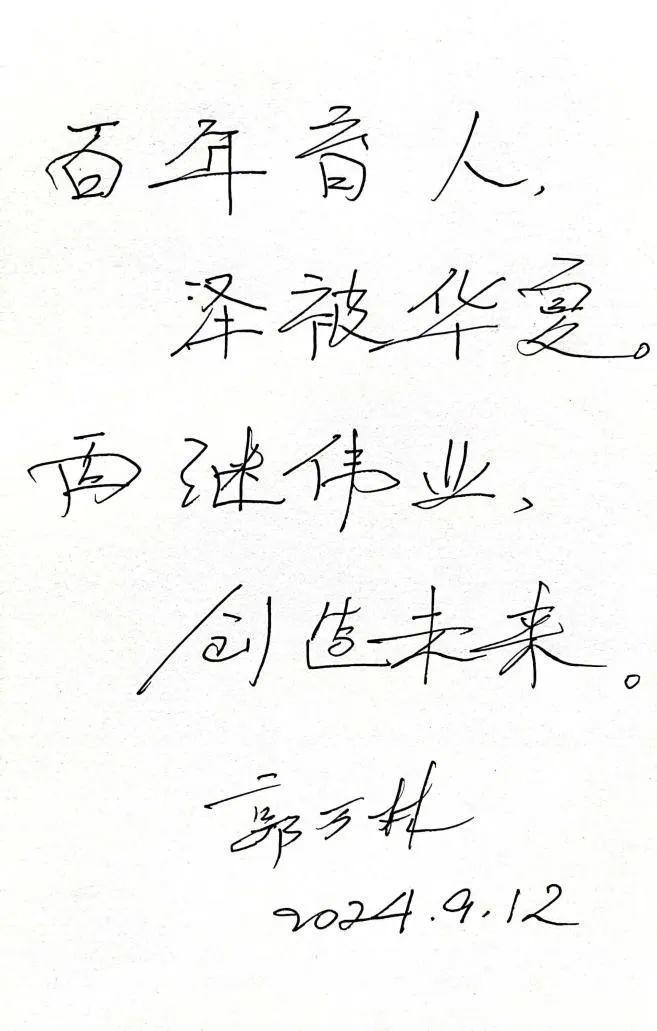 百年育人，
泽被华夏。
再继伟业，
创造未来。
郭万林
2024.9.12